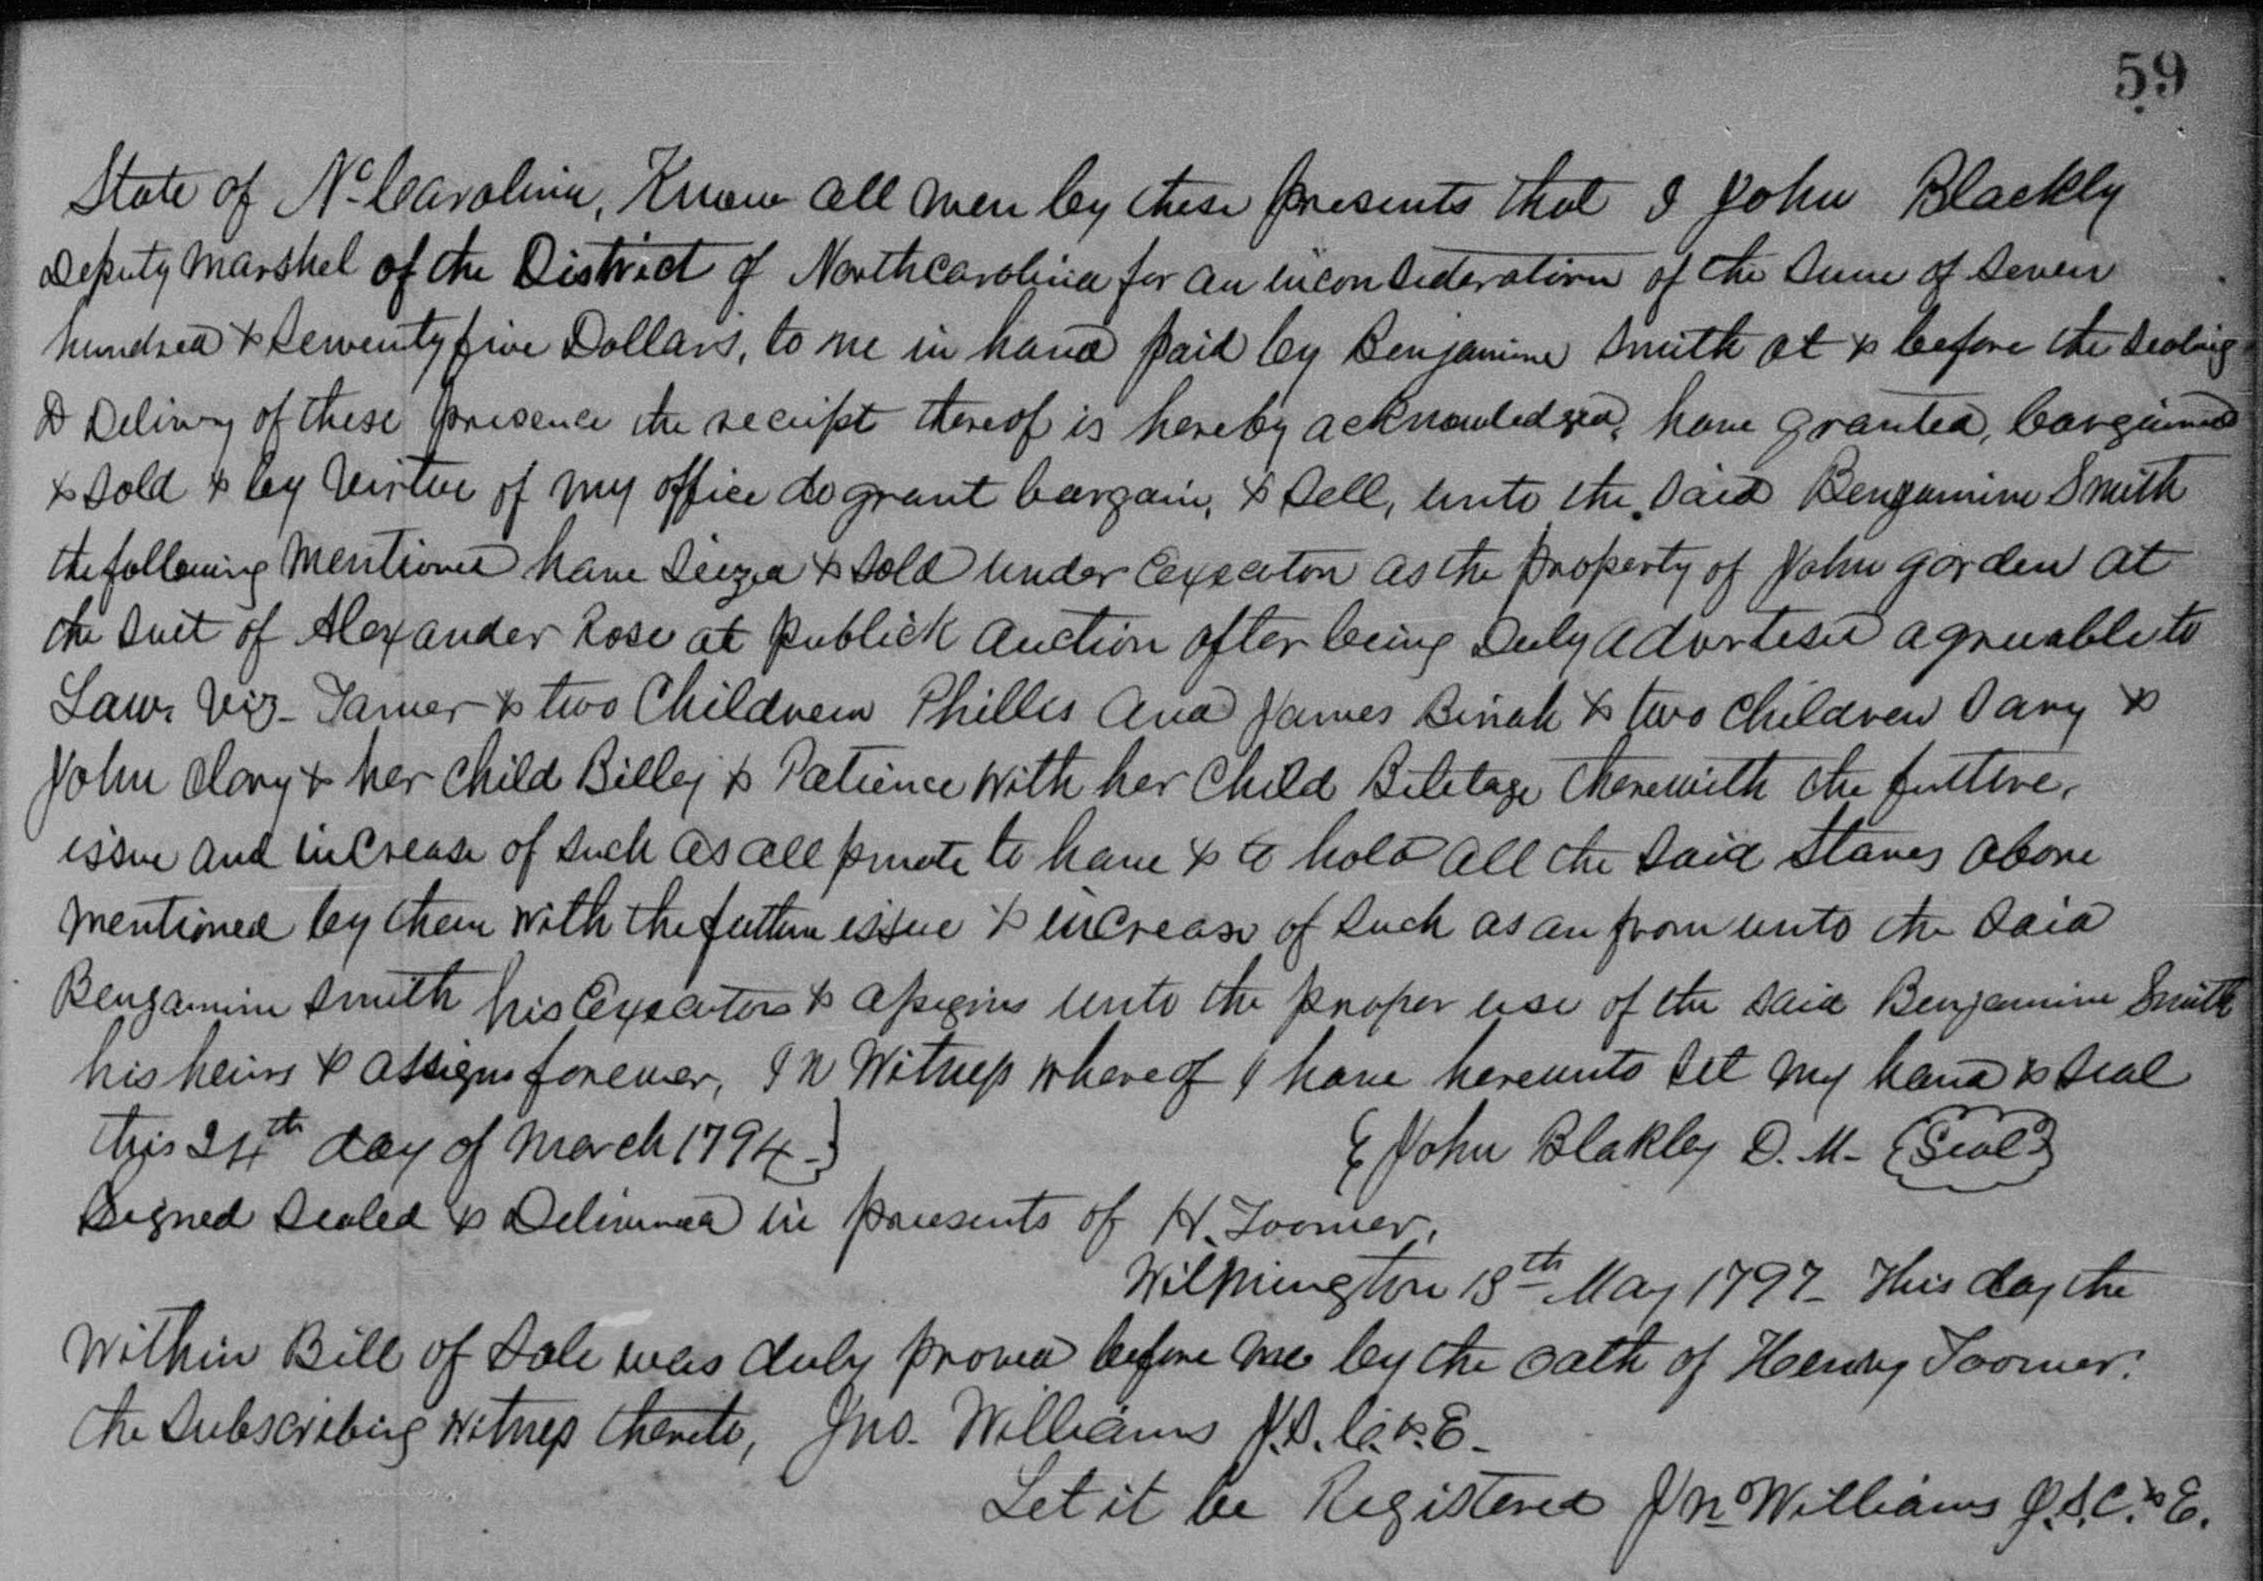 59
State of No. Carolina, Know all men by these presents that I John Blackly
Deputy Marshel of the District of Northcarolina for an inconsideration of the sum of seven
hundred & seventyfive Dollars, to me in hand paid by Benjamine Smith at & before the sealing
& Delivry of these presence the receipt thereof is hereby acknowledged, have granted, bargained
& sold & by virtue of my office do grant bargain, & sell, unto the said Benjamine Smith
the following mentioned have siezed & sold under Execution as the property of John Gorden at
the suit of Alexander Rose at publick auction after being Duly advertised agreuable to
Law. Viz- Tamer & two Childrein Phillis and James Binah & two children Davy &
John Clary & her child Billey & Patience with her Child Biletage therewith the future,
issue and increase of such as all to have & to hold all the said Slaves above
mentioned by them with the future issue & increase of such as an from unto the said
Benjamine Smith his Executors & assigns unto the proper use of the said Benjamine Smith
his heirs & assigns forever, In Witness whereof I have hereunto set my hand & seal
this 24th day of March 1794 } { John Blakley D. M. (Seal)
Signed sealed & Delivered in presents of H. Toomer.
Wilmington 18th May 1797- This day the
Within Bill of Sale was duly proved before me by the oath of Henry Toomer.
the subscribing witness thereto, Jno. Williams J.S.C.&E.
Let it be Registered Jno Williams J.S.C.&E.